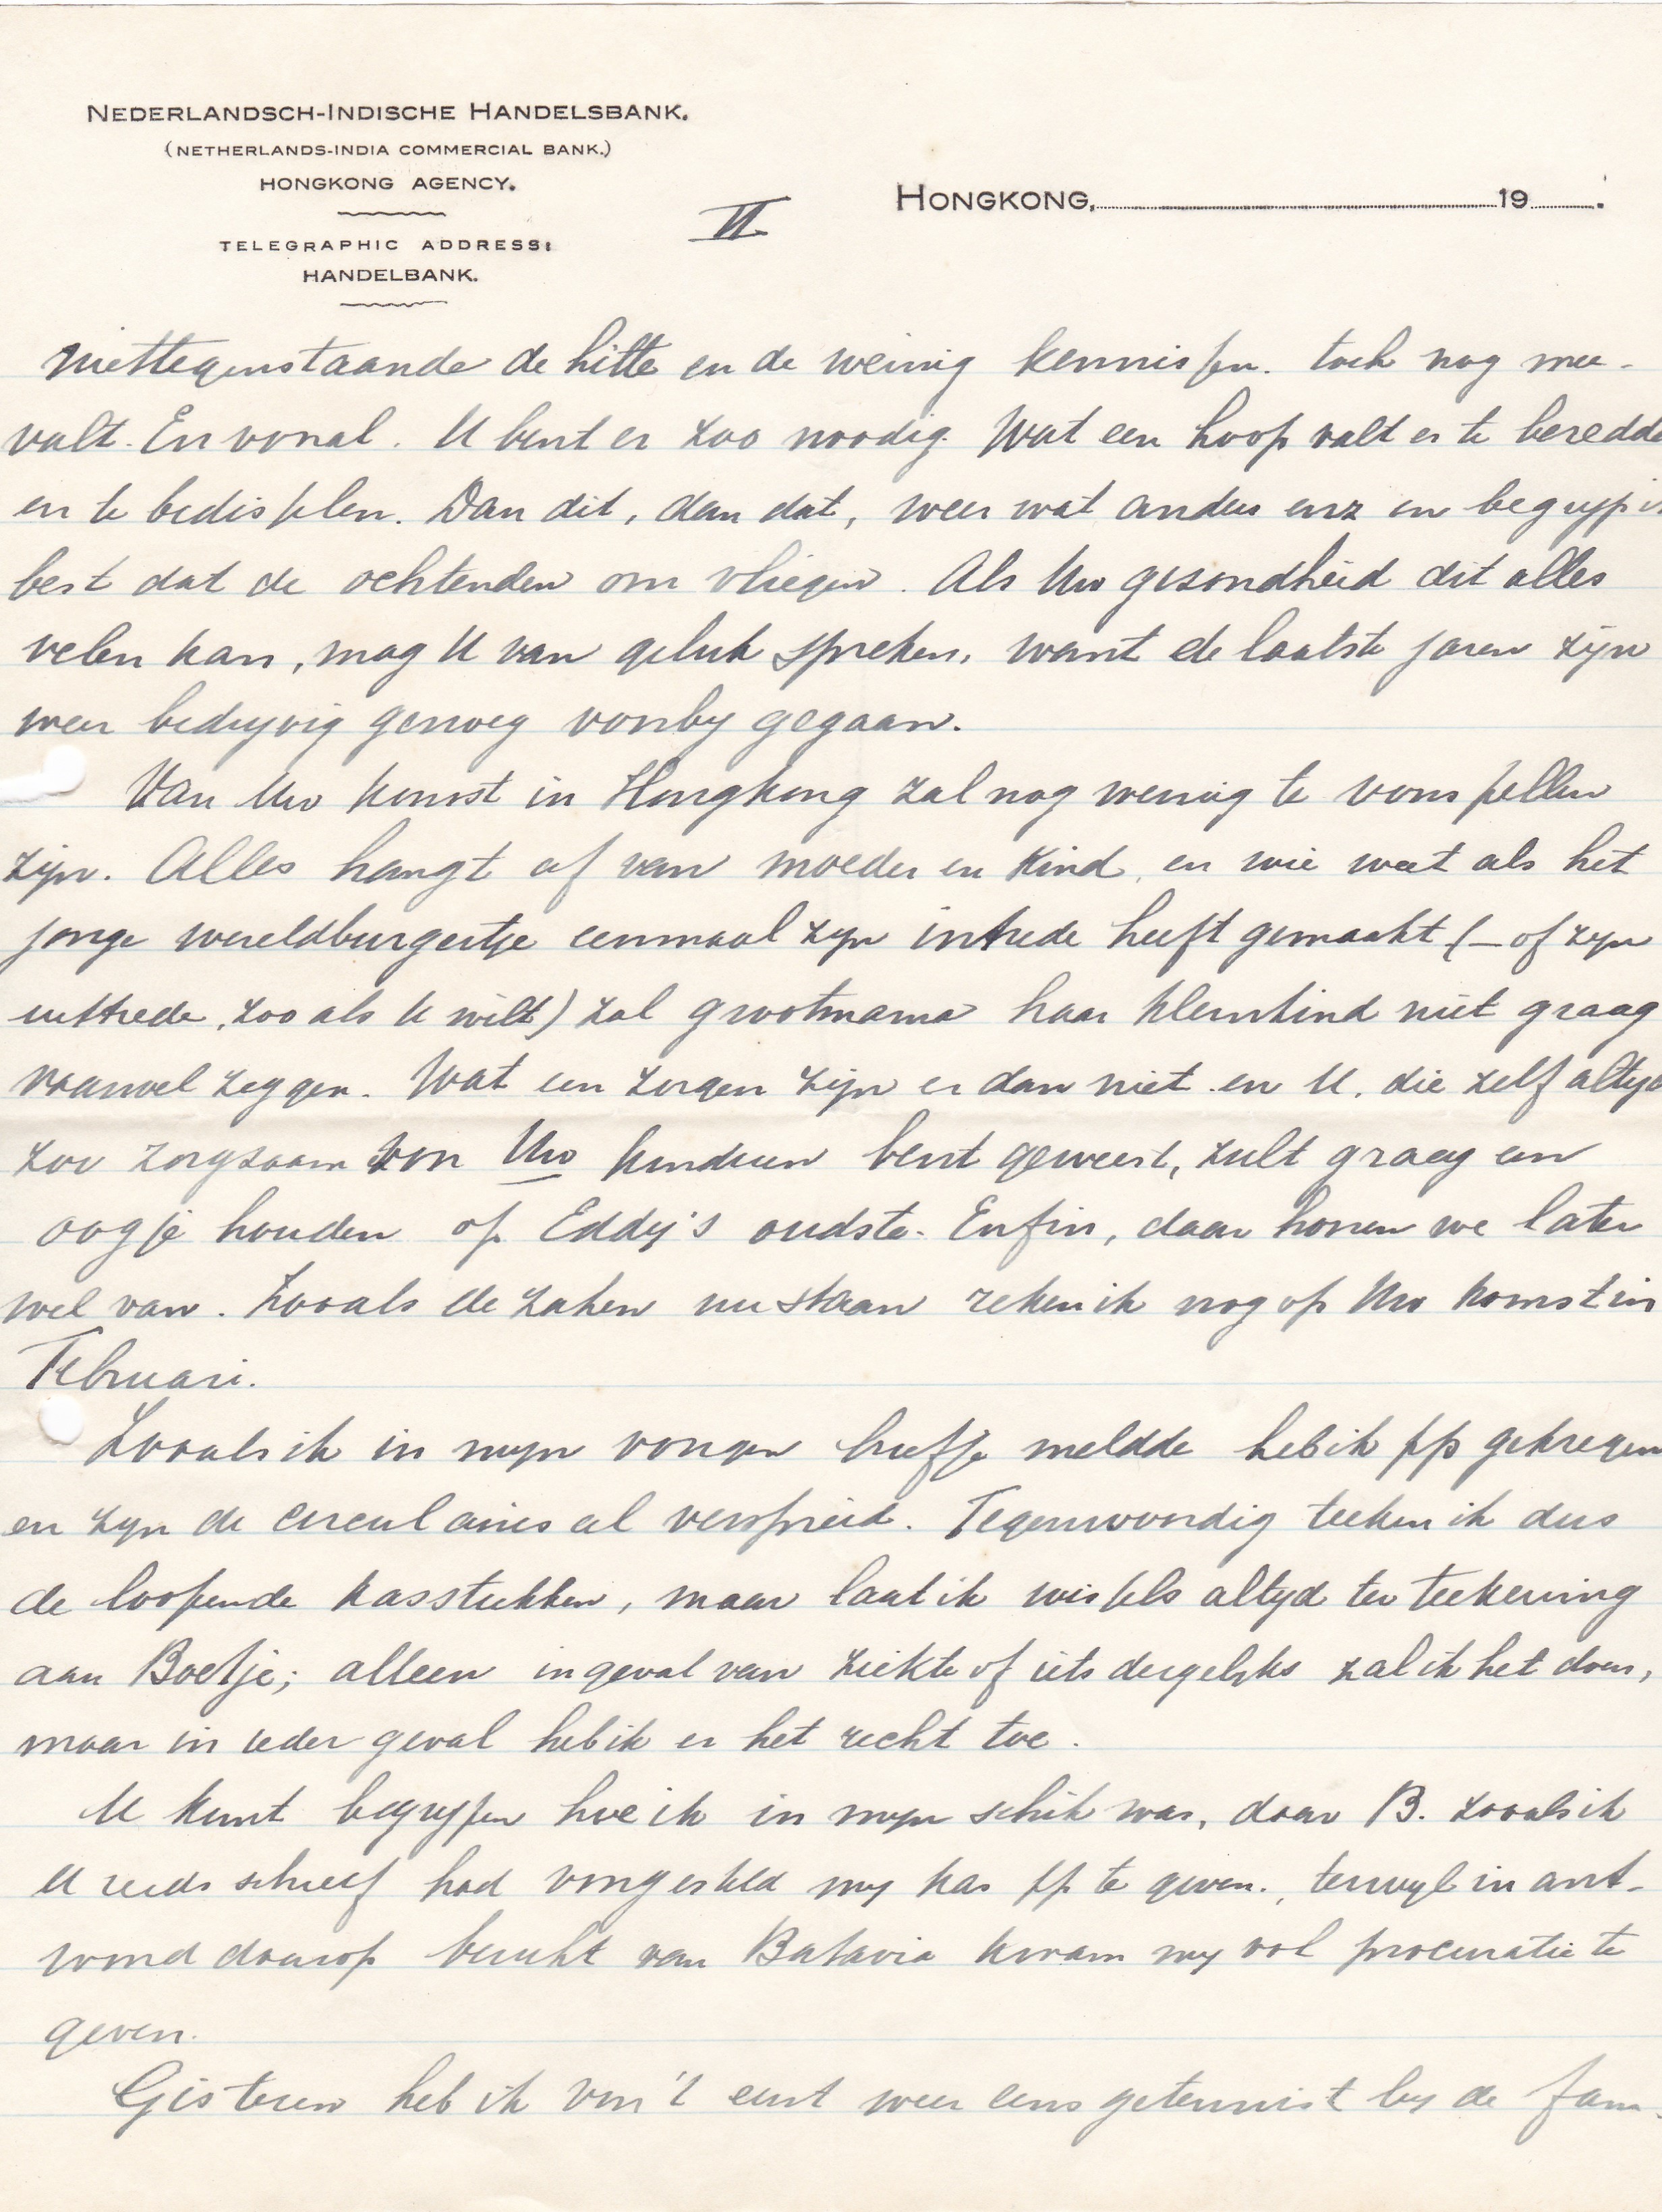 NEDERLANDSCH-INDISCHE HANDELSBANK.
(NETHERLANDS-INDIA COMMERCIAL BANK.)
HONGKONG AGENCY.
TELEGRAPHIC ADDRESS:
HANDELBANK.
II
HONGKONG, 19 .
niettegenstaande de hitte en de weinig kennissen. toch nog mee-
valt. En vooral. U bent er zoo noodig. Wat een hoop valt er te beredde
en te bedisselen. Dan dit, dan dat, weer wat anders enz en begryp ik
best dat de ochtenden om vliegen. Als Uw gezondheid dit alles
velen kan, mag U van geluk spreken, want de laatste jaren zijn
weer bedryvig genoeg voorby gegaan.
Van Uw komst in Hongkong zal nog weinig te voorspellen
zijn. Alles hangt af van moeder en kind, en wie weet als het
jonge wereldburgertje eenmaal zyn intrede heeft gemaakt (- of zyn
uittrede, zoo als U wilt) zal grootmama haar kleinkind niet graag
vaarwel zeggen. Wat een zorgen zijn er dan niet en U. die zelf altyd
zoo zorgzaam voor Uw kinderen bent geweest, zult graag een
oogje houden op Eddy's oudste. Enfin, daar hooren we later
wel van. Zooals de zaken nu staan reken ik nog op Uw komst in
Februari.
Zooals ik in myn vorigen briefje meldde heb ik pp gekregen
en zyn de circulaires al verspreid. Tegenwoordig teeken ik dus
de loopende kasstukken, maar laat ik wissels altyd ter teekening
aan Boetje; alleen ingeval van ziekte of iets dergelyks zal ik het doen,
maar in ieder geval heb ik er het recht toe.
U kunt begrypen hoe ik in myn schik was, daar B. zooals ik
U reeds schreef had voorgesteld my kas pp te geven., terwyl in ant-
woord daarop bericht van Batavia kwam my vol procuratie te
geven.
Gisteren heb ik voor 't eerst weer eens getennist by de fam.